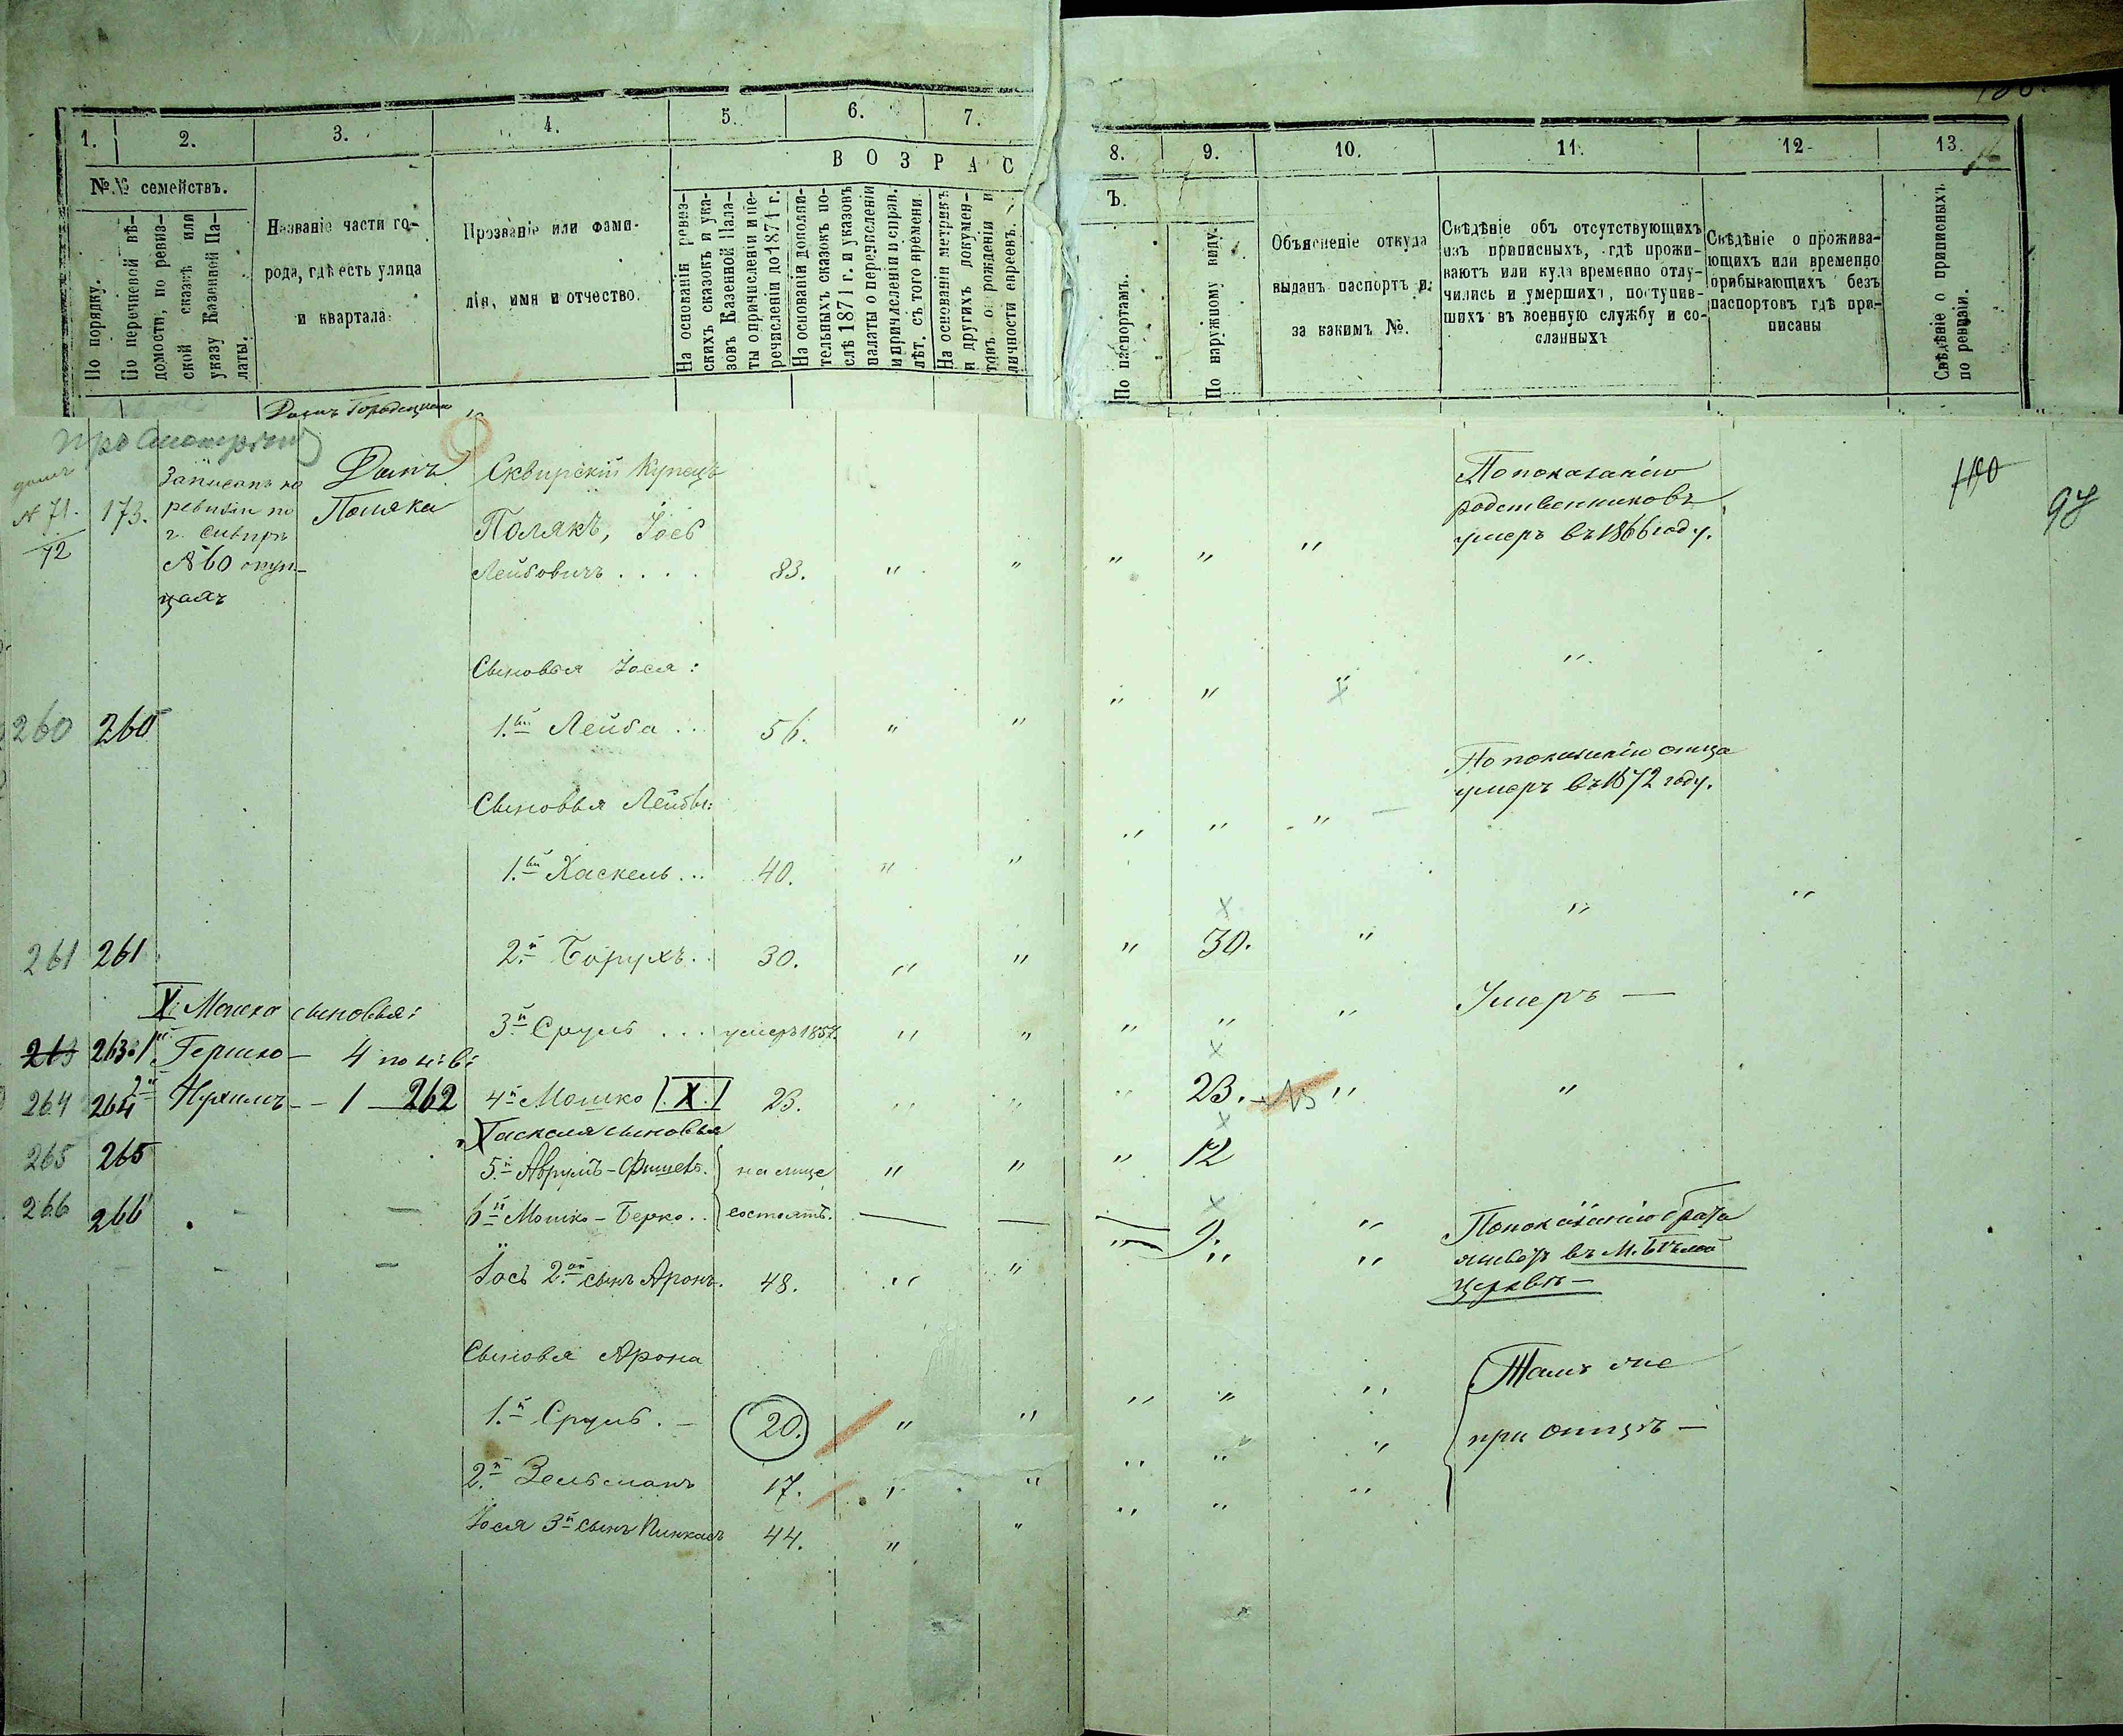 1.
2.
3.
4.
5.
6.
7.
ВОЗРАС
№.№ семействъ.
По порядку.
По перечневой вѣ-
домости, по ревиз-
ской сказкѣ или
указу Казенной Па-
латы.
Названіе части го-
рода, гдѣ есть улица
и квартала.
Прозваніе или фами-
лія, имя и отчество.
На основаніи ревиз-
скихъ сказокъ и ука-
зовъ Казенной Пала-
ты о причисленіи и пе-
речисленіи до 1871 г.
На основаніи дополни-
тельныхъ сказокъ по-
слѣ 1871 г. и указовъ
палаты о перечисленіи
и причисленіи и справ.
лѣт. съ того времени.
На основаніи метрикъ
и другихъ докумен-
товъ о рожденіи и
личности евреевъ.
8.
9.
10.
11.
12.
13.
Ъ.
По паспортамъ.
По наружному виду.
Объясненіе откуда
выданъ паспортъ и
за какимъ №.
Свѣдѣніе объ отсутствующихъ
изъ приписныхъ, гдѣ прожи-
ваютъ или куда временно отлу-
чились и умершихъ, поступив-
шихъ въ военную службу и со-
сланныхъ
Свѣдѣніе о прожива-
ющихъ или временно
прибывающихъ безъ
паспортовъ гдѣ при-
писаны
Свѣдѣніе о приписныхъ
по ревизіи.
домъ
N 71.
72
173.
Записанъ по
ревизіи по
г. Сквирѣ
№ 60 о куп-
цахъ
Домъ
Поляка
Сквирскій Купецъ
Полякъ, Іось
Лейбовичъ . . . . 83. " " " " "
По показанію
родственниковъ
умеръ въ 1866 году.
97
Сыновья Іося:
260 260 1.ый Лейба . . . 56. " " " " " "
Сыновья Лейбы:
По показанію отца
умеръ въ 1872 году.
1.ый Хаскель . . . 40. " " " " "
261 261 2.й Борухъ . . 30. " " " 30. " " "
X Мошко сыновья:
3.й Сруль . . . умеръ 1857. " " " " " Умеръ —
263 263 1й Гершко — 4 по н: в:
264 264 2й Нухимъ — 1 262 4й Мошко X 23. " " " 23. " "
Хаскеля сыновья
265 265 5.й Аврумъ-Фишель. на лице " " " 12
266 266 6й Мошко-Берко . . состоятъ. — — 9. "
Іось 2.ой сынъ Аронъ. 48. " " " " "
По показанію брата
живетъ въ М. Бѣлой
Церквѣ —
Сыновья Арона
1.й Сруль. — 20. " " " " "
Тамъ же
при отцѣ —
2.й Зельманъ 17. " " " " "
Іося 3й сынъ Пинкасъ 44. " " " " "